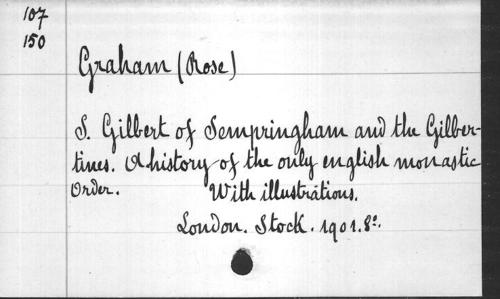 107
150
Graham (Rose)
S. Gilbert of Sempringham and the Gilber-
tines. A history of the only english monastic
Order. With illustrations.
London. Stock. 1901. 8º.